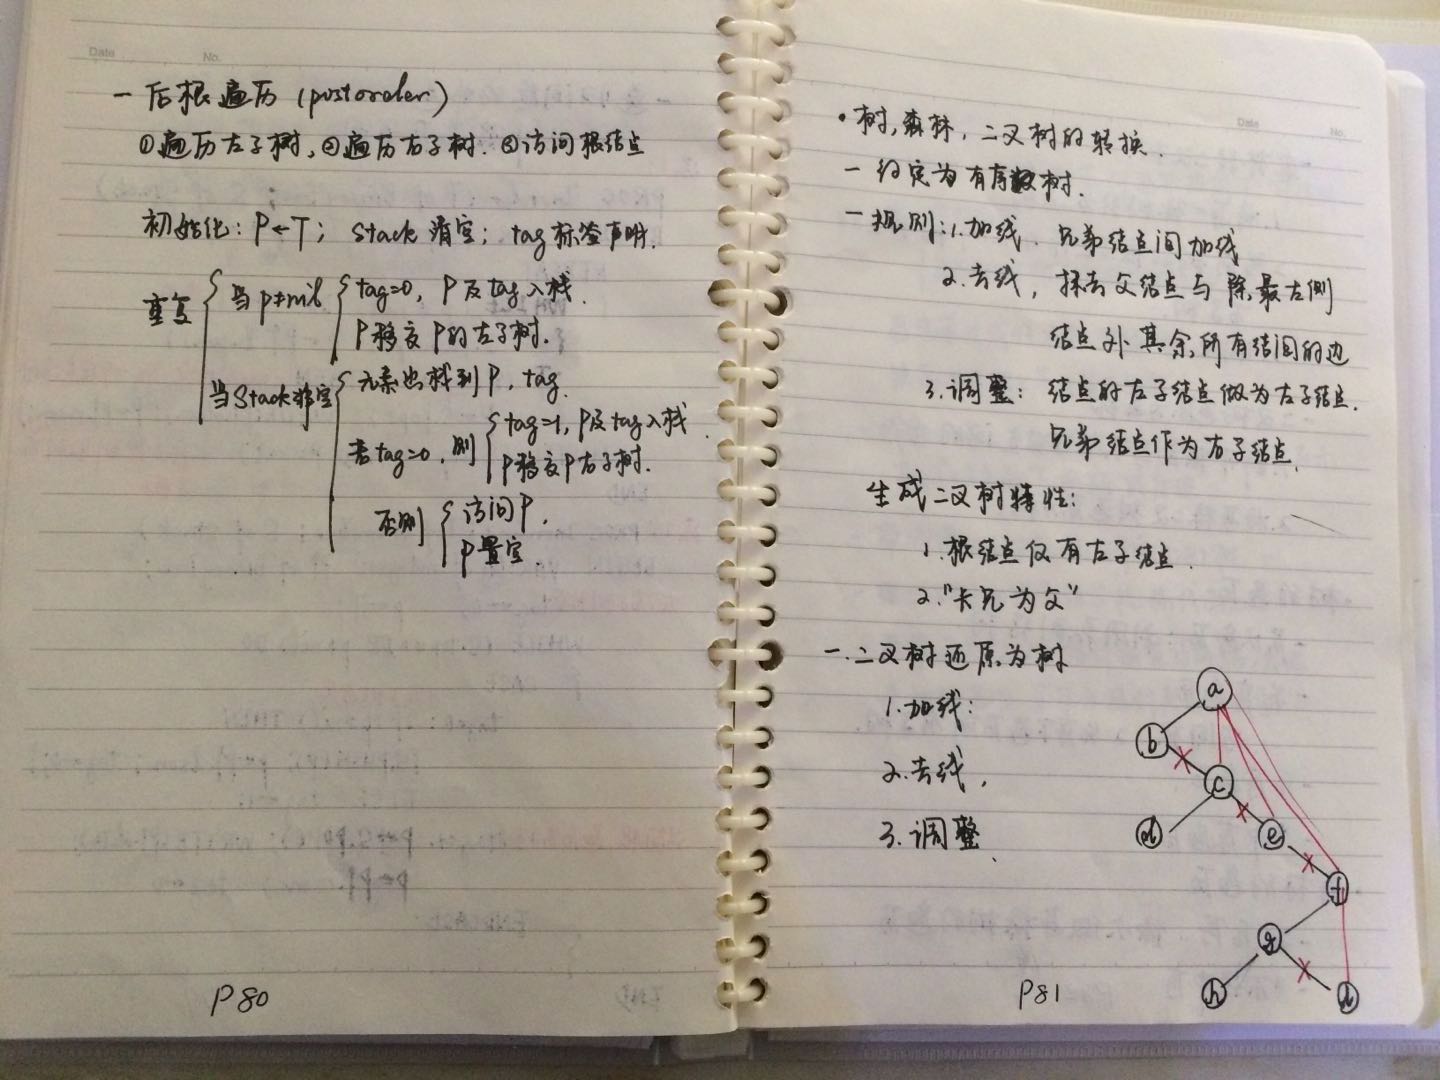 Date No.
一 后根遍历 (postorder)
①遍历左子树, ②遍历右子树. ③访问根结点
初始化: P←T; Stack 清空; tag标签声明.
重复 当P≠nil tag=0, P及tag入栈.
P移交P的左子树.
当Stack非空 元素出栈到P, tag.
若tag=0, 则 tag=1, P及tag入栈.
P移交P右子树.
否则 访问P,
P置空.
P80
Date No.
• 树, 森林, 二叉树的转换.
一 约定为有序树.
一 规则: 1. 加线. 兄弟结点间加线
2. 去线, 抹去父结点与除最左侧
结点外其余所有结间的边
3. 调整: 结点的左子结点做为左子结点.
兄弟结点作为右子结点.
生成二叉树特性:
1. 根结点仅有左子结点.
2. "长兄为父"
一. 二叉树还原为树
1. 加线:
2. 去线,
3. 调整.
a
b
c
d
e
f
g
h
i
P81